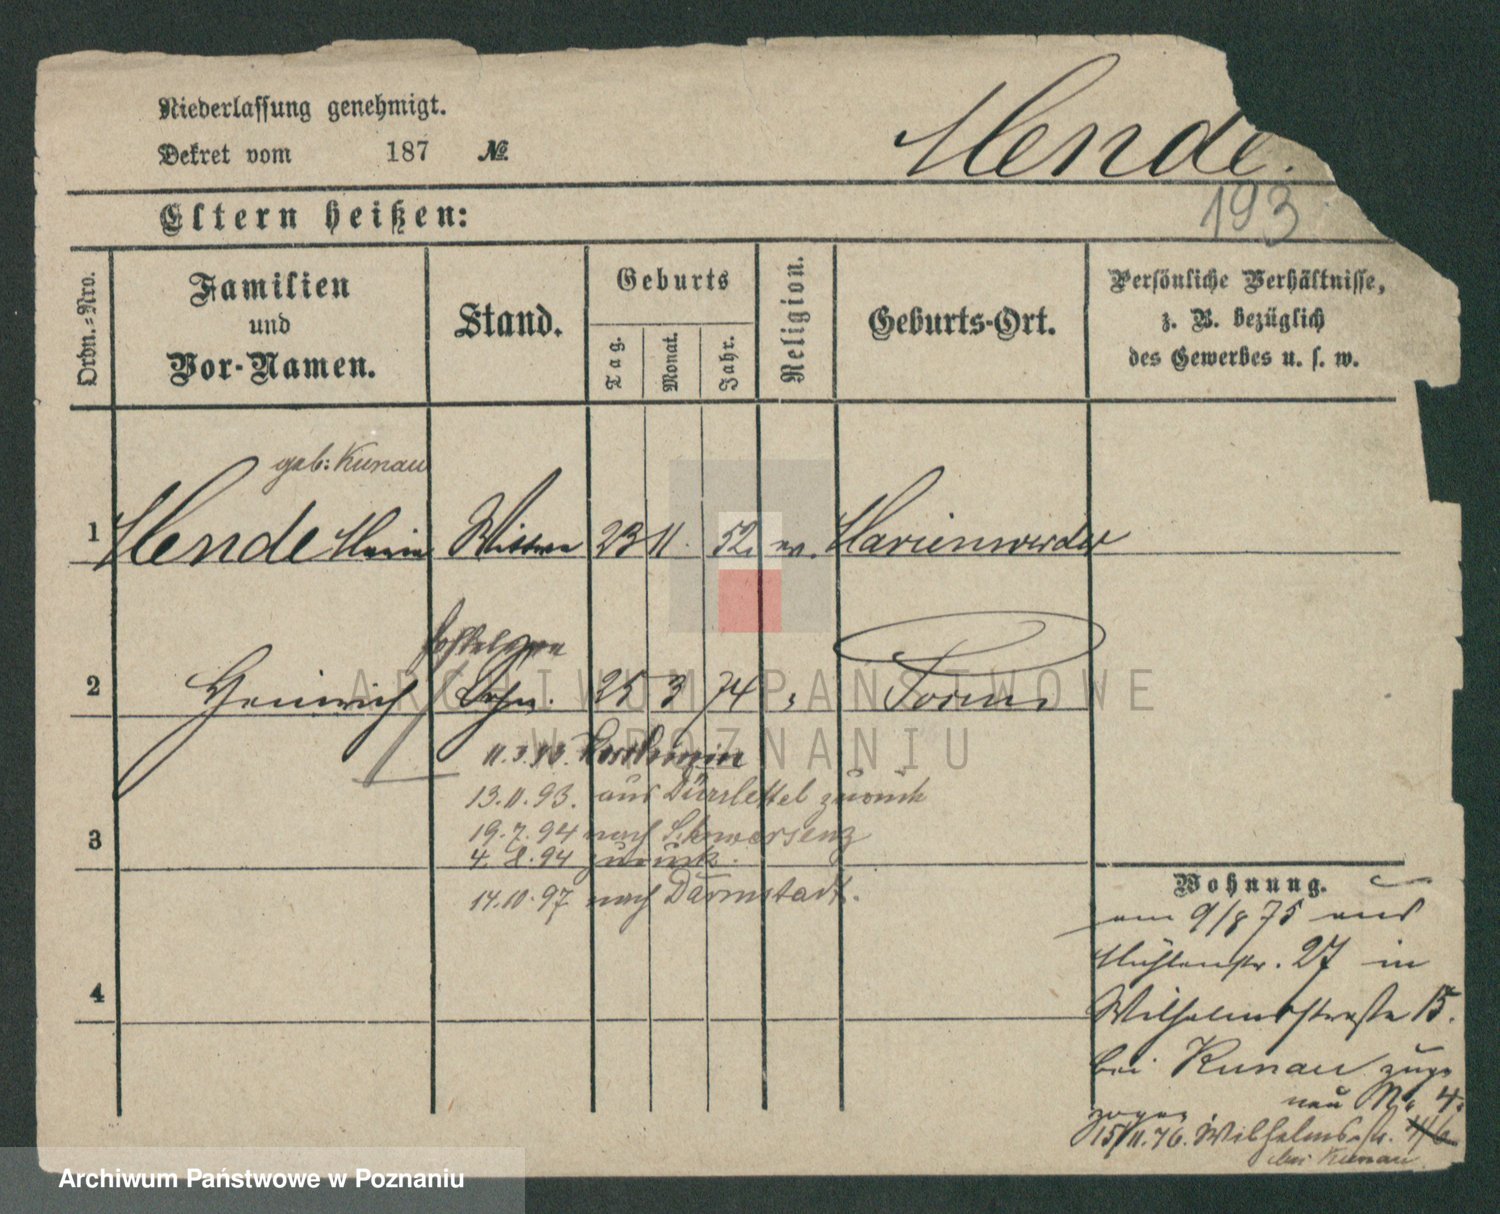 Niederlassung genehmigt.
Dekret vom 187 No.
Mende.
193
Eltern heißen:
Ordn.-Nro.
Familien
und
Vor-Namen.
Stand.
Geburts
Tag.
Monat.
Jahr.
Religion.
Geburts-Ort.
Persönliche Verhältnisse,
z. B. bezüglich
des Gewerbes u. s. w.
geb: Kunau
1 Mende Marie Wittwe 23 11. 52. ev. Marienwerder
2 Heinrich Sohn. 25 3 74 Posen
11.3.93.
13.11.93. aus Dürrlettel zurück
3
19.7.94 nach Schwersenz
4. 8. 94 zurück.
14.10.97 nach Darmstadt.
4
Wohnung.
am 9/8 75 aus
Mühlenstr. 27 in
Wilhelmsstraße 15.
bei Kunau zuge
zogen neu No 4.
15/11.76. Wilhelmsstr.
bei Kunau
ARCHIWUM PAŃSTWOWE
W POZNANIU
Archiwum Państwowe w Poznaniu